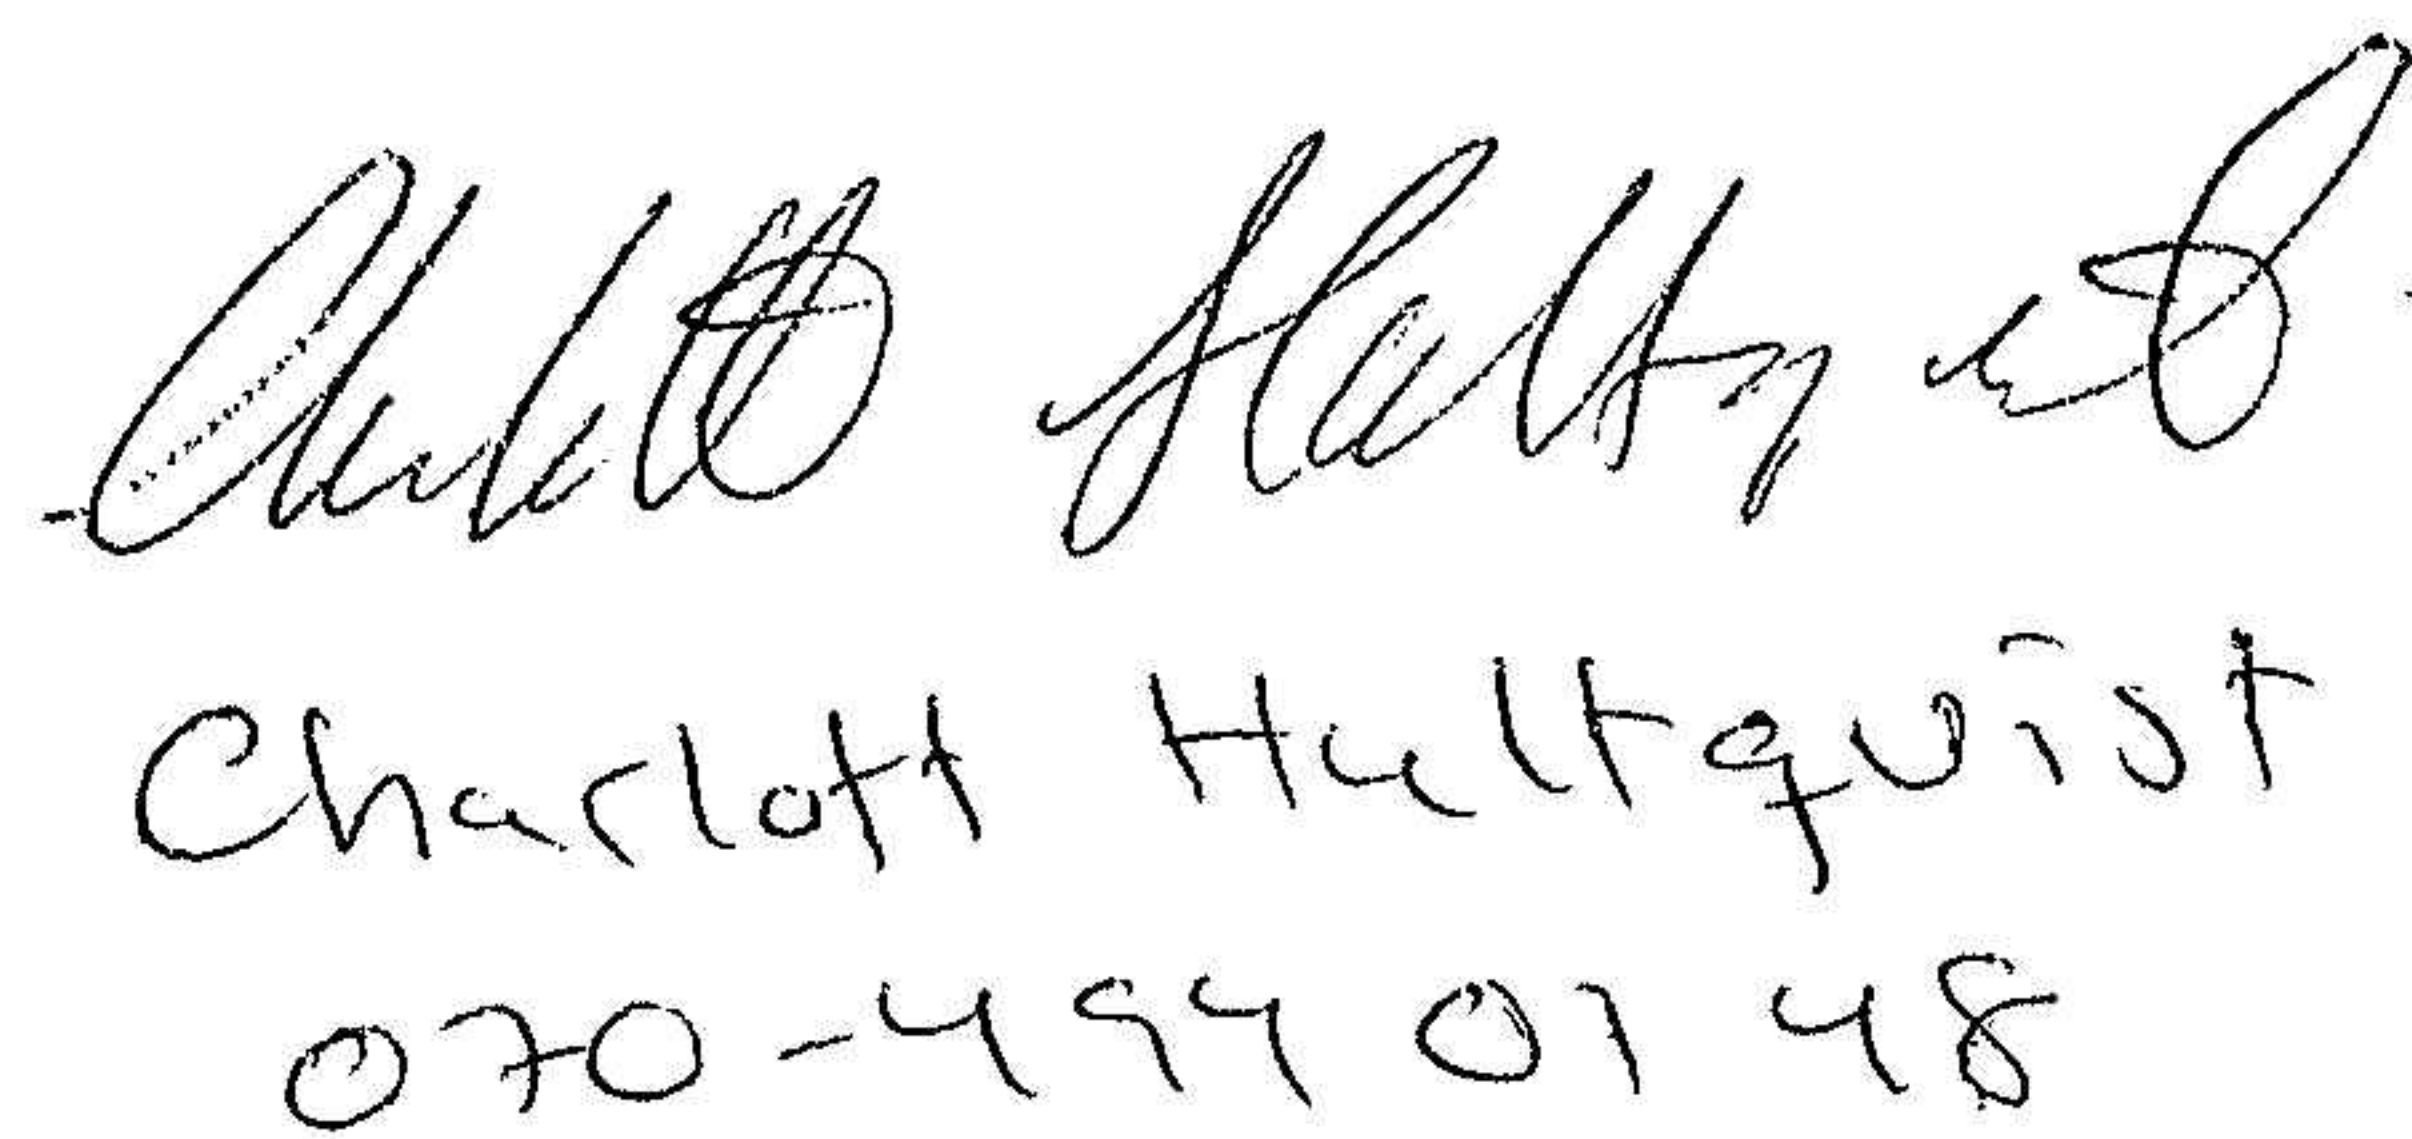 Charlott Hultquist
Charlott Hultquist
070-494 01 48